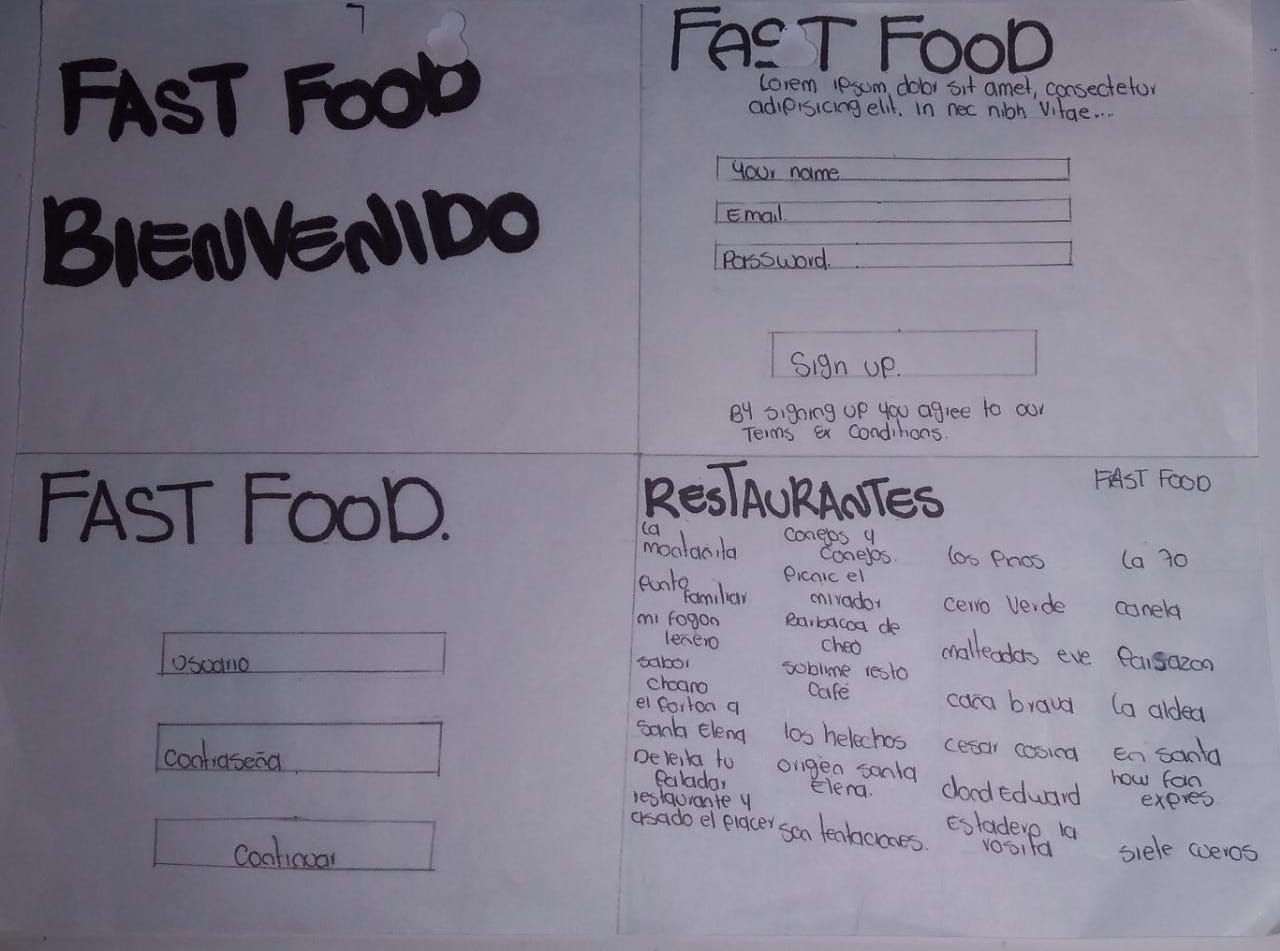 FAST FOOD
BIENVENIDO
FAST FOOD
Lorem ipsum, dolor sit amet, consectetur
adipisicing elit. In nec nibh Vitae...
Your name
Email.
Password.
Sign up.
By signing up you agree to our
Terms & Conditions.
FAST FOOD.
Usuario
Contraseña
Continuar
RESTAURANTES
FAST FOOD
la
montañita
Punto
familiar
mi fogon
leñero
sabor
choano
el porton a
Santa Elena
Deleita tu
Paladar
restaurante y
asado el placer
Conejos y
Conejos.
Picnic el
mirador
Barbacoa de
cheo
sublime resto
Café
los helechos
origen santa
Elena.
son tentaciones.
los Pinos
cerro Verde
malteadas eve
caña brava
cesar cosina
dond Edward
Estadero la
rosita
la 70
canela
Paisazon
la aldea
En santa
how fan
expres
siete cueros